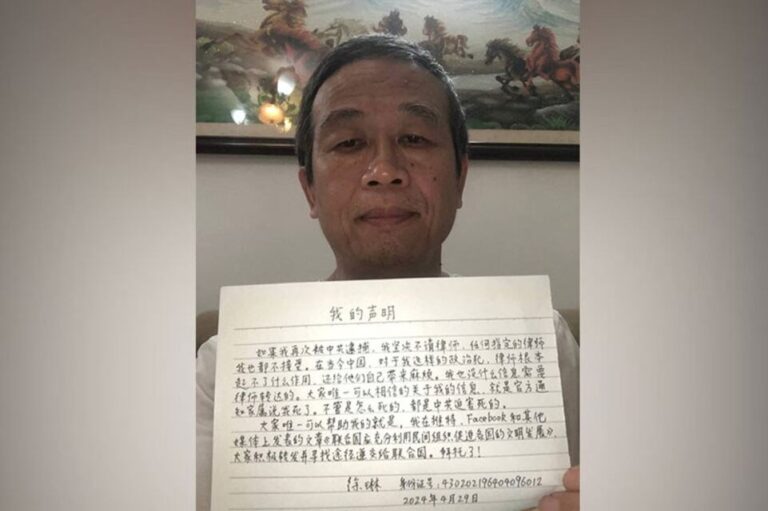 我的声明
如果我再次被中共逮捕，我坚决不请律师，任何指定的律师
我也都不接受。在当今中国，对于我这样的政治犯，律师根本
起不了什么作用，还给他们自己带来麻烦。我也没什么信息需要
律师转达的。大家唯一可以相信的关于我的信息，就是官方通
知家属说我死了。不管是怎么死的，都是中共迫害死的。
大家唯一可以帮助我的就是，我在推特、Facebook和其他
媒体上发表的文章《联合国应充分利用民间组织促进各国的文明发展》，
大家积极转发并寻找途径递交给联合国。拜托了！
徐琳 身份证号：430202196404096012
2024年4月29日